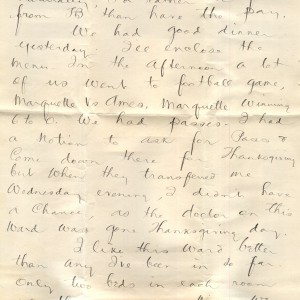 from TB than have the pay.
We had good dinner
yesterday. I'll enclose the
menu. In the afternoon a lot
of us went to football game,
Marquette vs Ames, Marquette winning
6 to 0. We had passes. I had
a notion to ask for Pass &
Come down there for Thanksgiving
but when they transfered me
Wednesday evening, I didnt have
a Chance, as the doctor on this
Ward was gone Thanksgiving day.
I like this ward better
than any I've been in so far
Only two beds in each room